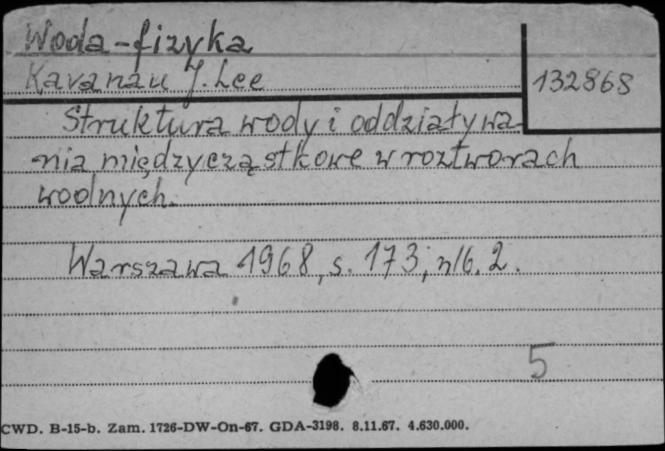 Woda-fizyka
Kavanau J. Lee
132868
Struktura wody i oddziaływa-
nia międzycząstkowe w roztworach
wodnych.
Warszawa 1968, s. 173, nlb. 2.
5
CWD. B-15-b. Zam. 1726-DW-On-67. GDA-3198. 8.11.67. 4.630.000.